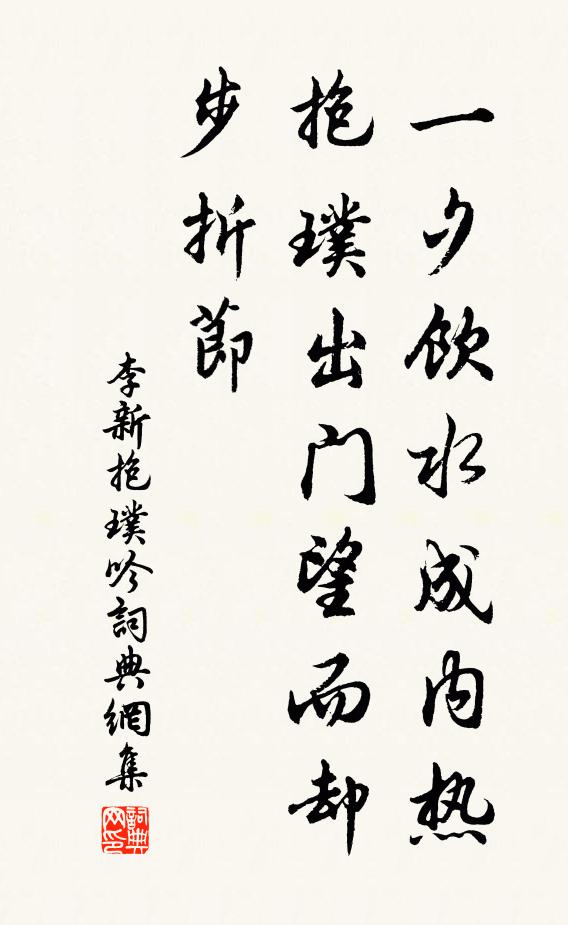 一夕飲水成内热
抱璞出门望而却
步折節
李新抱璞吟詞典網集
詞典网印